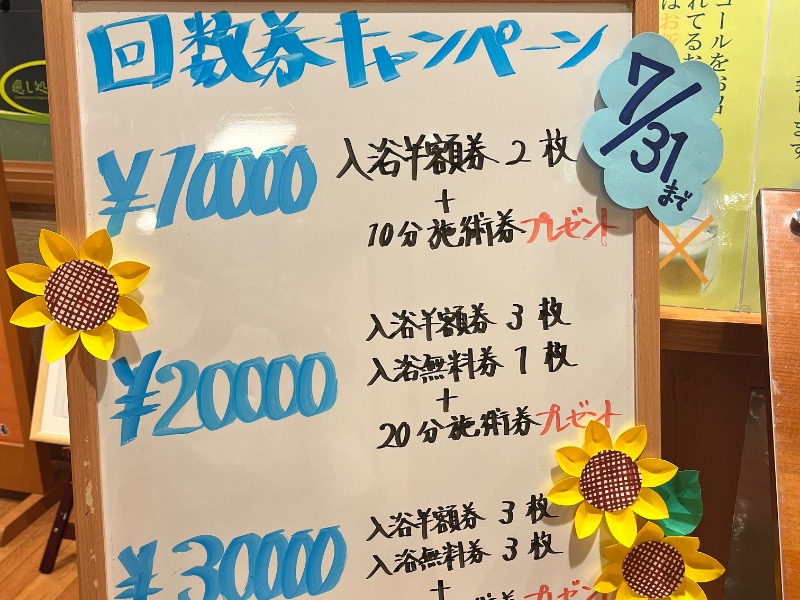 回数券キャンペーン
7/31
まで
¥10000
入浴半額券 2枚
+
10分施術券プレゼント
¥20000
入浴半額券 3枚
入浴無料券 1枚
+
20分施術券プレゼント
¥30000
入浴半額券 3枚
入浴無料券 3枚
+
プレゼント
癒し処